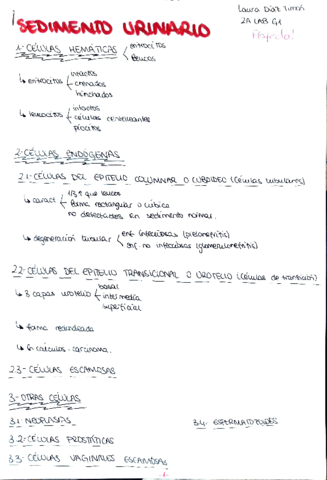 Laura Díaz
2A LAB G1
SEDIMENTO URINARIO
1.- CÉLULAS HEMÁTICAS
eritrocitos
leucos
↳ eritrocitos
intactos
crenados
hinchados
↳ leucocitos
intactos
células centelleantes
piocitos
2.- CÉLULAS ENDÓGENAS
2.1.- CÉLULAS DEL EPITELIO COLUMNAR O CUBOIDEO (Células tubulares)
↳ caract
1/3 ↑ que leucos
forma rectangular o cúbica
no detectables en sedimento normal.
↳ degeneración tubular
enf. infecciosas (pielonefritis)
enf. no infecciosas (glomerulonefritis)
2.2.- CÉLULAS DEL EPITELIO TRANSICIONAL O UROTELIO (Células de transición)
↳ 3 capas urotelio
basal
intermedia
superficial
↳ forma redondeada
↳ cálculos - carcinoma.
2.3.- CÉLULAS ESCAMOSAS
3.- OTRAS CÉLULAS
3.1.- NEOPLASIAS
3.4.- ESPERMATOZOIDES
3.2.- CÉLULAS PROSTÁTICAS
3.3.- CÉLULAS VAGINALES ESCAMOSAS